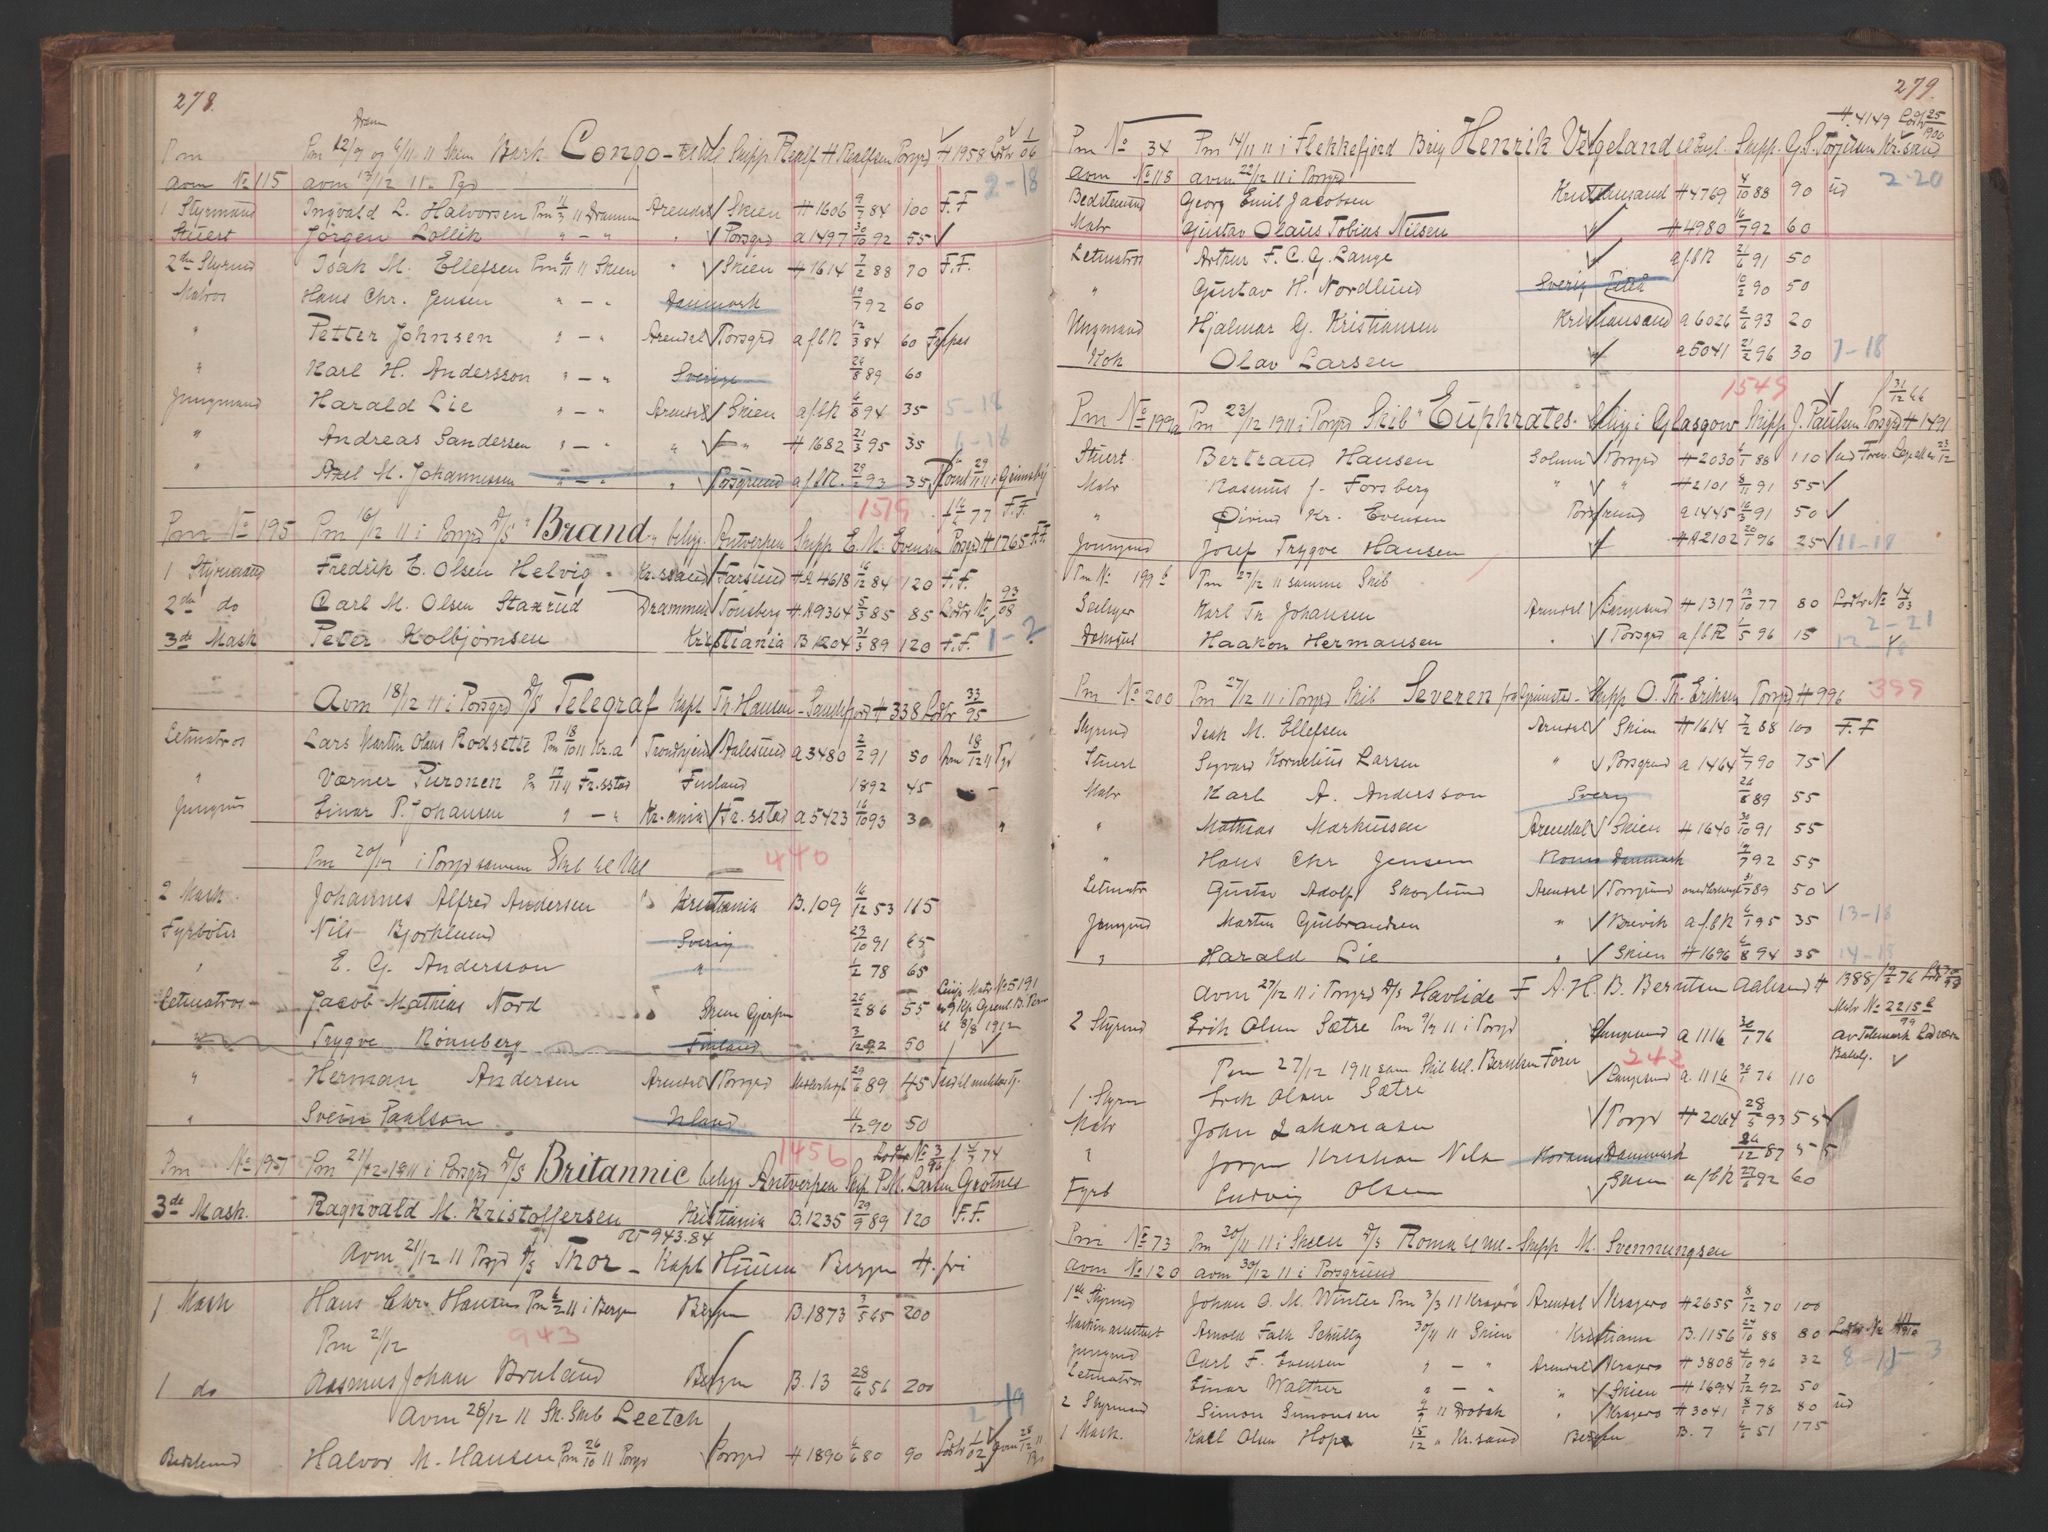 278.
Dram
Pm Pm 12/9 og 6/11 11 Skien Bark Congo Skipp. Realf H Realfsen Porsgrd H 1958 Lodtr 1/06
avm No 115 avm 13/12 11 Pgd 2-18
1 Styrmand Ingvald L. Halvorsen Pm 11/3 11 Drammen Arendal Skien H 1606 9/7 84 100 F.F
Stuert Jörgen Lollik " - " " Porsgrd a 1497 30/10 92 55
2den Styrmd Isak M. Ellefsen Pm 6/11 11 Skien " Skien H 1614 7/2 88 70 F.F.
Matros Hans Chr. Jensen " - " Danmark 19/7 92 60
" Petter Johnsen " - " Arendal Porsgrd a f b R 12/3 84 60
" Karl H. Andersson " - " Sverige 26/8 89 60
Jungmand Harald Lie " - " Arendal Skien a f b R 6/8 94 35 5-18
" Andreas Sandersen " - " " - " H 1682 21/3 95 35 6-18
" Axel M. Johannessen " - " " Porsgrund a f b R. 29/2 93 35 Römt 29/11 11 i Grimsby
1579 14/2 77 F.F.
Pm No 195 Pm 16/12 11 i Porsgrd D/S "Brand" belig. Antwerpen Skipp E. M. Evensen Porsgrd H 1765 F.F.
1 Styrmand Fredrik E. Olsen Helvig Kr.ssand Farsund HA 4618 16/12 84 120 F.F.
2den do Carl M. Olsen Staxrud Drammen Tönsberg HA 9364 5/5 85 85 Lodtr No 93/08
3de Mask Peter Kolbjörnsen Kristiania B 1204 31/3 89 120 F.F. 1-2
Avm 18/12 11 i Porsgrd D/S Telegraf Kapt Th Hansen - Sandefjord H 338 Lodtr 33/95
Letmatros Lars Martin Olaus Rodsette Pm 18/10 11 Kr.a Trondhjem Aalesund a 3480 2/2 91 50 Pm 18/12 11 Pgd
" Værner Püronen Pm 17/11 11 Fr.sstad Finland 1892 45 " -
Jungms Einar P. Johansen " - " Kr.ania Fr.sstad a 5423 16/10 93 30 "
Pm 20/12 i Porsgrd samme Skib 440
2 Mask. Johannes Alfred Andersen Kristiania B. 109 16/12 53 115
Fyrböter Nils Bjorklund Sverig 23/10 91 65
" E. G. Andersson " 1/2 78 65
Letmatros Jacob Mathias Nord Skien Gjerpen 26/2 86 55
" Trygve Rönnberg Finland 3/12 92 50
" Herman Andersen Arendal Porsgrd 29/6 89 45
" Svein Paulson Island 11/12 90 50
1456 Lodtr No 3/96 f 4/7 74
Pm No 197 Pm 21/12 1911 i Porsgrd D/S Britannic belig Antwerpen Skip P. M. Larsen Grotnes
3de Mask. Ragnvald M. Kristoffersen Kristiania B. 1235 29/9 89 120 F.F.
943.84
Avm 21/12 11 Porsgd D/S Thor - Kapt Bergen H. fri
1 Mask Hans Chr. Hansen Pm 6/2 11 i Bergen Bergen B. 1873 3/5 65 200
Pm 21/12 943
1 do Rasmus Johan Bruland Bergen B. 13 28/6 56 200
Avm 28/12 11 Sk. Skb Leetch 2-19
Bedstmnd Halvor M. Hansen Pm 26/10 11 Porsgd Porsgrd H 1890 6/6 80 90 Lodtr 1/02 avm 28/12 11
279.
H. 4149 Lodtr 25/1900
Pm No 34 Pm 14/11 11 i Flekkefjord Brig Henrik Vergeland Skipp. G. S. Torjussen Kr.sand
avm No 118 avm 22/12 11 i Porsgrd 2-20
Bedstemnd Georg Emil Jacobsen Kristiansand H 4769 4/10 88 90 ud
Matr Gustav Olaus Tobias Nilsen " H 4980 16/7 92 60
Letmatros Arthur F. C. G. Lange " a f b R 21/6 91 50
" Gustav H. Nordlund Sverig 10/2 90 50
Ungmand Hjalmar G. Kristiansen Kristiansand a 6026 2/6 93 20
Kok Olav Larsen " a 5041 21/2 96 30 7-18
1549 f 31/12 66
Pm No 199a Pm 23/12 1911 i Porsgrd Skib "Euphrates" belig i Glasgow Skipp J. Paulsen Porsgrd H 1491
Stuert. Bertrand Hansen Solum Porsgrd H 2030 1/1 88 110
Matr Rasmus J. Forsberg " " H 2101 8/11 91 55
" Öivind Kr. Evensen Porsgrund a 1445 16/3 91 50
Jungmd Josef Trygve Hansen " HA 2102 20/1 96 25 11-18
Pm No 199 b Pm 27/12 11 samme Skib
Seilmgr Karl Th Johansen Arendal Langesund H 1317 13/10 77 80 Lodtr No 14/03
2-21
Dæksgut Haakon Hermansen " Porsgrd a f b R 1/5 96 15
Pm No 200 Pm 27/12 11 i Porsgrd Skib Severen fra Grimstad - Skipp O. Th. Eriksen Porsgrd H 996 399
Styrmd Isak M. Ellefsen Arendal Skien H 1614 7/2 88 100 F.F
Stuert Sigvard Kornelius Larsen " Porsgrund a 1464 4/7 90 75
Matr Karl A. Andersson Sverig 26/8 89 55
" Mathias Markussen Arendal Skien H 1640 30/10 91 55
" Hans Chr Jensen Danmark 19/7 92 55
Letmatr Gustav Adolf Skoglund Arendal Porsgrund 31/7 89 50
Jungmd Martin Gulbrandsen " Brevik a f b R 6/1 95 35 13-18
" Harald Lie " Skien H 1696 6/8 94 35 14-18
Avm 27/12 11 i Porsgrd D/S Havlide F A. H. B. Berntsen Aalesund H 1388
2 Styrmd Erik Olsen Sætre Pm 9/7 11 i Porsgd Langesund a 1116 30/1 76
Matr No 2215/99
av Telemark
Pm 27/12 1911 sam Skib Berntsen Förer 242
1. Styrm Erik Olsen Sætre Langesund a. 1116 30/1 76 110
Matr John Zakariasen Porsgr H 2064 28/5 93 55
" Jorgen Kristian Nilsen Danmark 26/12 87 55
Fyrb Ludvig Olsen Skien a f b R 27/6 92 60
Pm No 73 Pm 30/11 11 i Skien D/S Roma - Skipp M. Svennungsen
avm No 120 avm 30/12 11 i Porsgrund
1ste Styrmd Johan O. M. Winter Pm 3/3 11 Kragerö Arendal Kragerö H 2655 8/12 70 100
Maskinassistent Arnold Falk Schultz 30/11 11 Skien Kristiania B. 1156 24/10 88 80
Jungmd Carl F. Evensen " - " Arendal Kragerö H 3808 4/10 96 32
Letmatros Einar Walther " - " " Skien H 1694 7/12 92 50
2 Styrmand Simon Simonsen 9/9 11 Dröbak " Kragerö H 3041 8/1 78 80 ud
1 Mask. Karl Olsen Hope 15/12 " Kr.sand Bergen B. 7 6/6 51 175